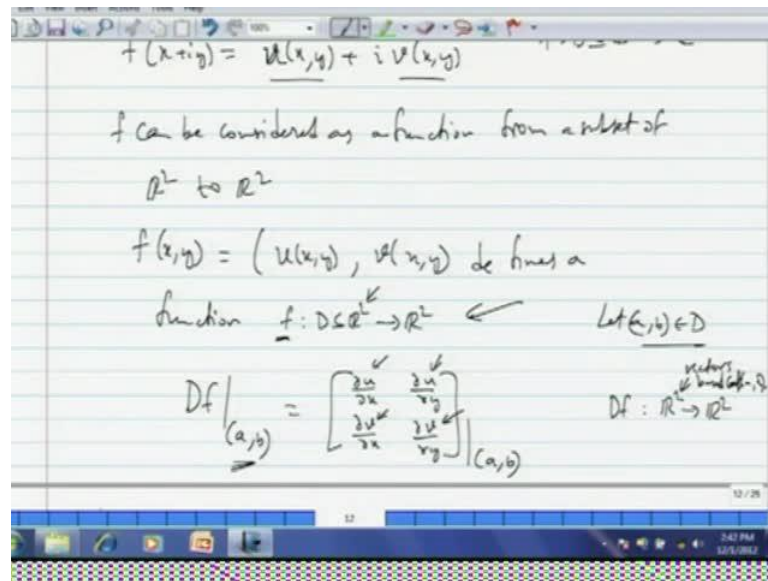 f(x+iy) = u(x,y) + i v(x,y)
f can be considered as a function from a subset of
ℝ² to ℝ²
f(x,y) = (u(x,y), v(x,y) defines a
function f : D ⊆ ℝ² → ℝ²
Let (a,b) ∈ D
Df|(a,b) = [∂u/∂x ∂u/∂y
∂v/∂x ∂v/∂y]|(a,b)
vectors
Df : ℝ² → ℝ²
12/26
12
2:42 PM
12/1/2012